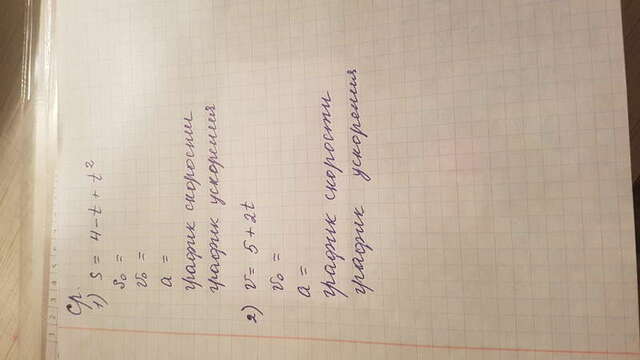 Ср.
1) S = 4 - t + t²
S₀ =
v₀ =
a =
график скорости
график ускорения
2) v = 5 + 2t
v₀ =
a =
график скорости
график ускорения